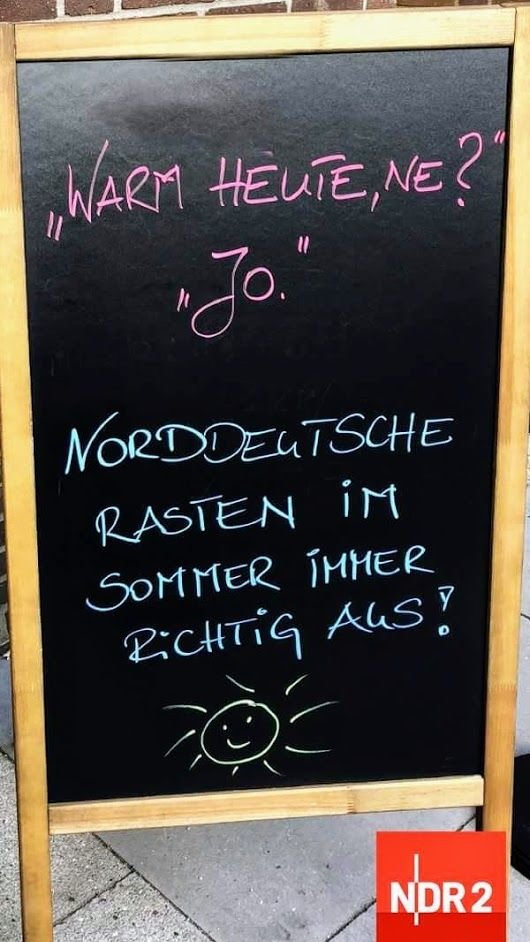 „WARM HEUTE, NE?“
„JO.“
NORDDEUTSCHE
RASTEN IM
SOMMER IMMER
RICHTIG AUS!
NDR 2